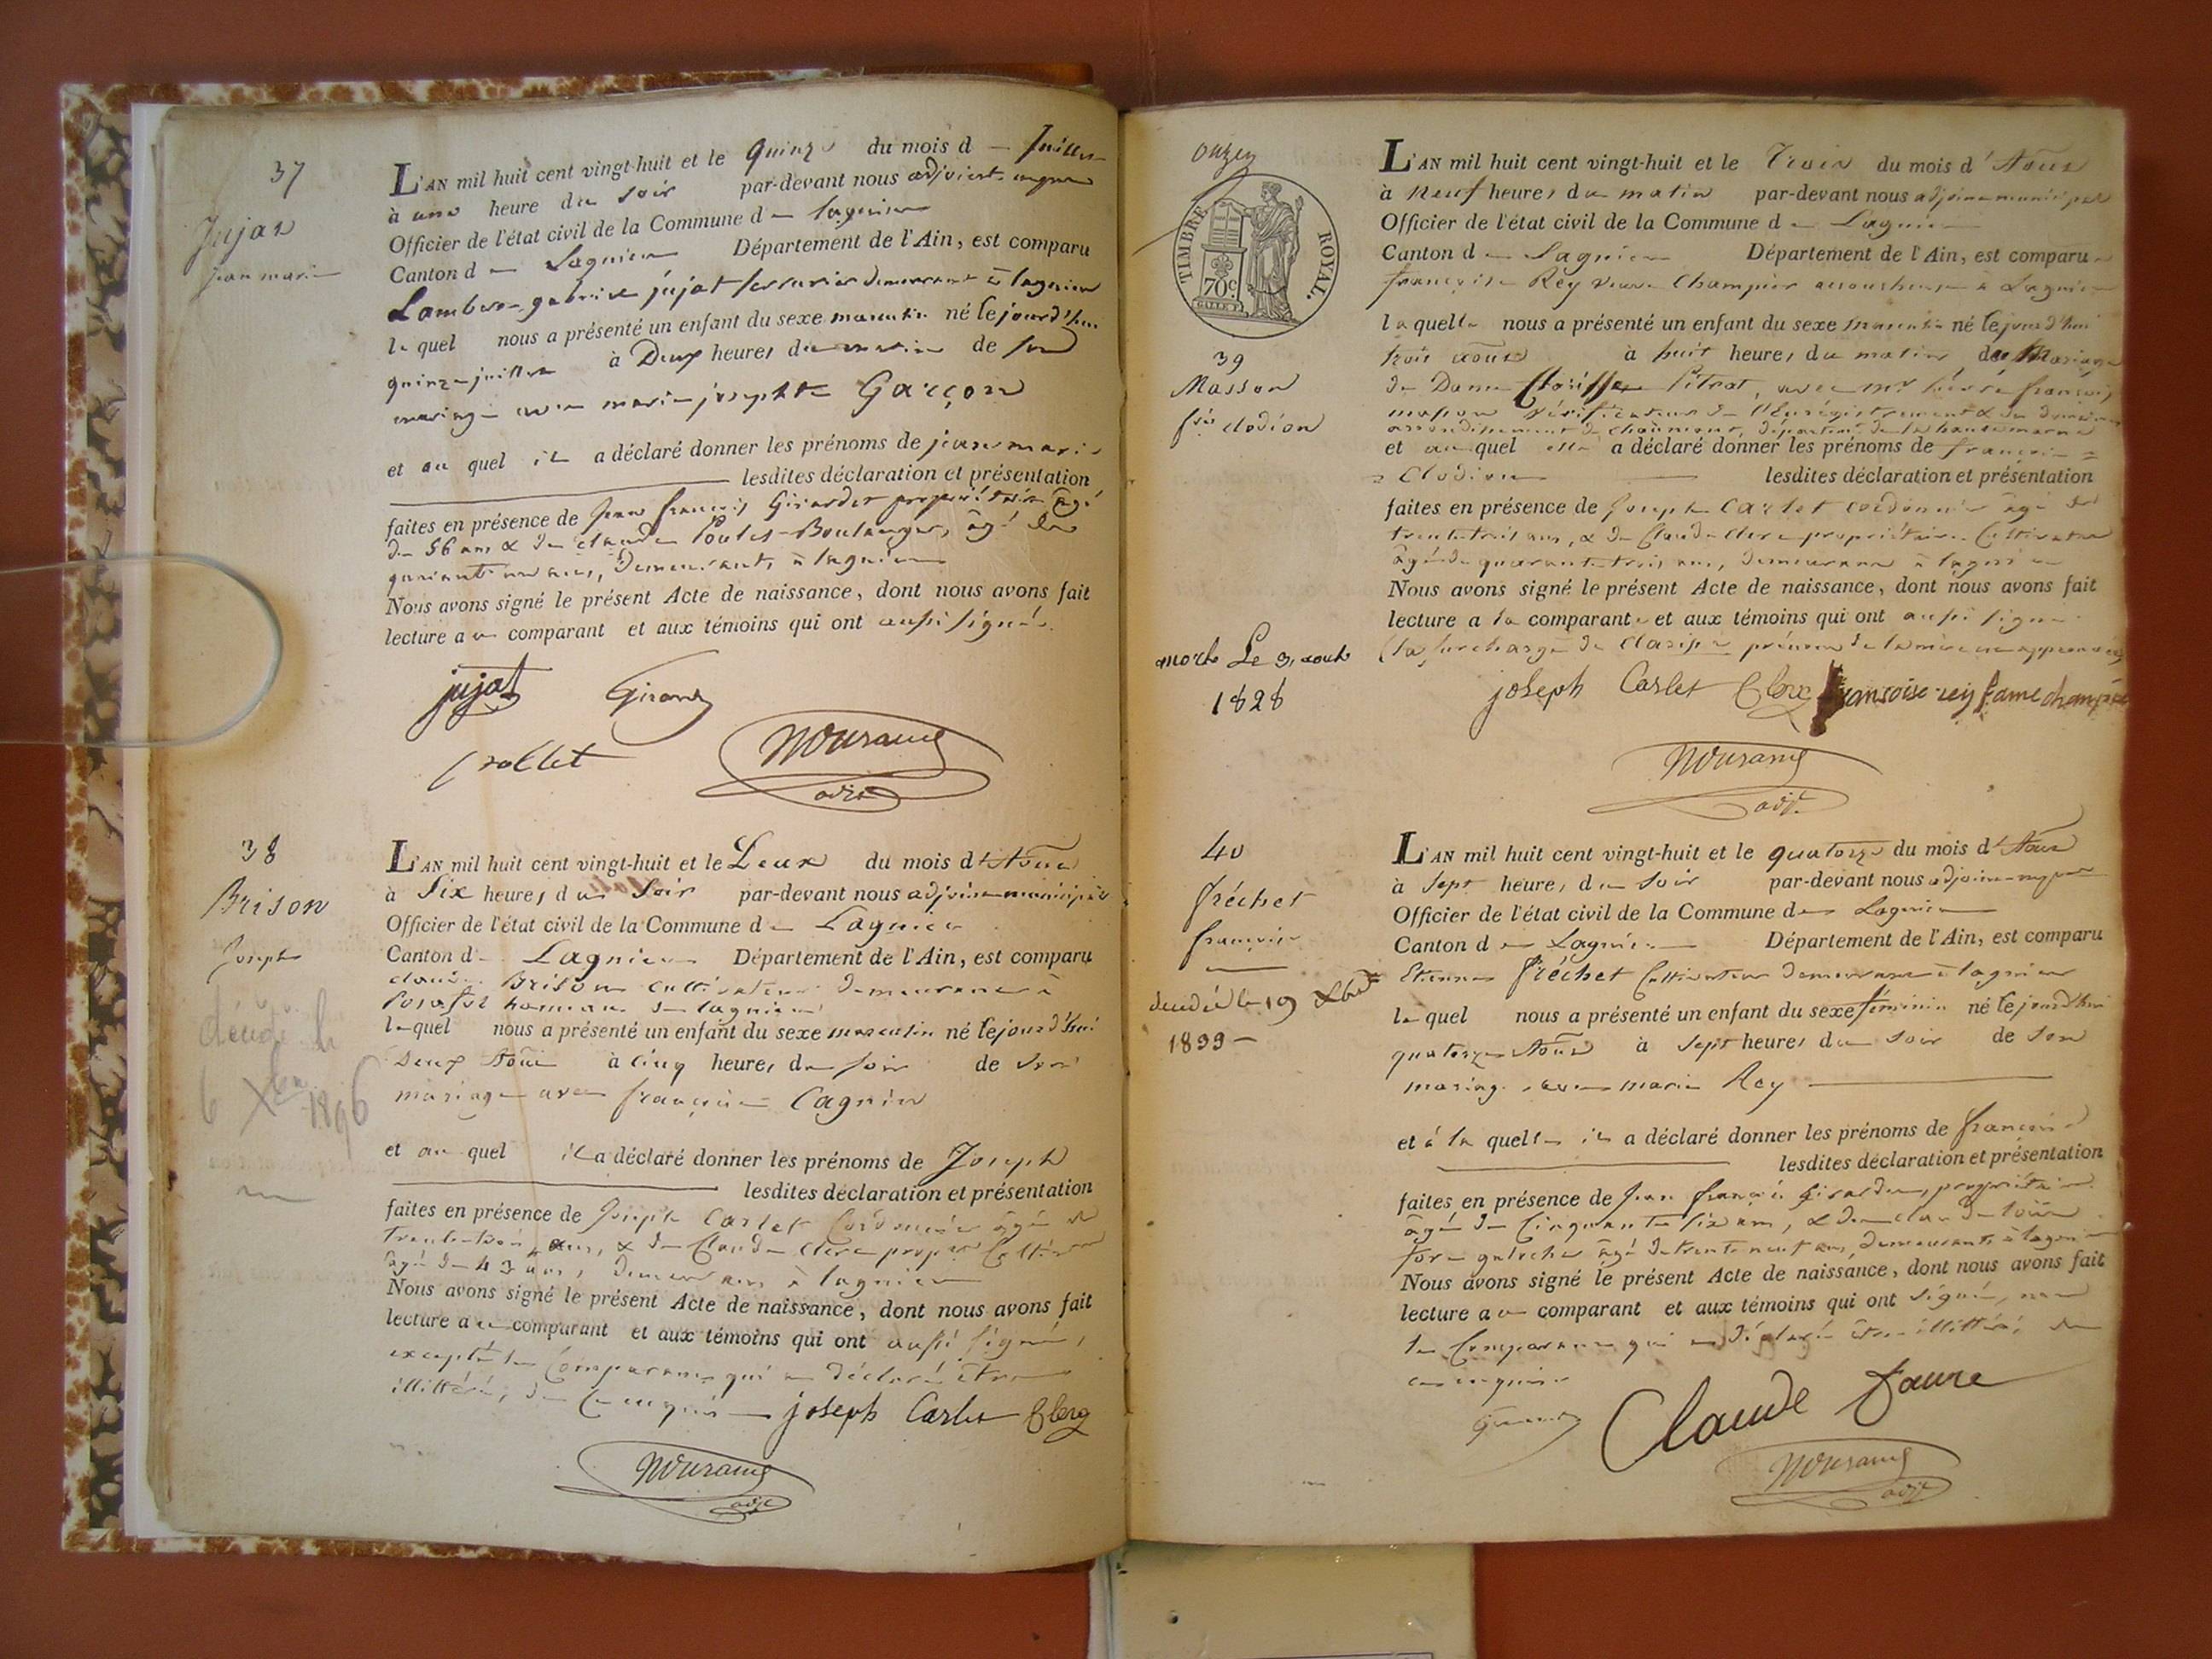 37
Jujat
jean marie
L'AN mil huit cent vingt-huit et le quinze du mois d juillet
à une heure du soir par-devant nous adjoint
Officier de l'état civil de la Commune d lagnieu
Canton d Lagnieu Département de l'Ain, est comparu
Lambert gabriel jujat serrurier demeurant à lagnieu
le quel nous a présenté un enfant du sexe masculin né lejourd'hui
quinze juillet à Deux heures du matin de son
mariage avec marie josephte Garçon
et au quel il a déclaré donner les prénoms de jean marie
lesdites déclaration et présentation
faites en présence de jean françois Girardet propriétaire âgé
de 56 ans & de claude Boulanger, âgé de
ans, demeurants à lagnieu
Nous avons signé le présent Acte de naissance, dont nous avons fait
lecture au comparant et aux témoins qui ont aussi signés.
jujat
38
Brison
Joseph
décédé le
6 Xbre 1896
L'AN mil huit cent vingt-huit et le Deux du mois d'Aoüt
à Six heures du Soir par-devant nous adjoint municipal
Officier de l'état civil de la Commune de Lagnieu
Canton de Lagnieu Département de l'Ain, est comparu
claude Brison cultivateur demeurant à
Posafol hameau de lagnieu
le quel nous a présenté un enfant du sexe masculin né lejourd'hui
deux Aoüt à cinq heures du soir de son
mariage avec françoise Cagnin
et au quel il a déclaré donner les prénoms de Joseph
lesdites déclaration et présentation
faites en présence de Joseph Carlet Cordonnier âgé de
trente trois ans, & de Claude clerc propre Cultivr
âgé de 43 ans, demeurans à lagnieu
Nous avons signé le présent Acte de naissance, dont nous avons fait
lecture au comparant et aux témoins qui ont aussi signé,
excepté le Comparant qui a déclaré être
illittéré, de ce enquis
joseph Carlet Clerc
adjt
onzey
TIMBRE ROYAL.
70c
39
Masson
fois clodion
morte Le 31 aout
1828
L'AN mil huit cent vingt-huit et le Trois du mois d'Aoüt
à Neuf heures du matin par-devant nous adjoint municipal
Officier de l'état civil de la Commune de Lagnieu
Canton de Lagnieu Département de l'Ain, est comparue
françoise Rey veuve Champier accoucheuse à Lagnieu
la quelle nous a présenté un enfant du sexe masculin né lejourd'hui
trois aoüt à huit heures du matin, du Mariage
de Dame Clarisse Pitrat, avec mr pierre françois
masson vérificateur de l'Enrégistrement & des domaines
arrondissement de chaumont, département de la haute marne
et au quel elle a déclaré donner les prénoms de françois =
= Clodion lesdites déclaration et présentation
faites en présence de Joseph Carlet cordonnier âgé de
trente trois ans, & de Claude clerc propriétaire Cultivateur
âgé de quarante trois ans, demeurans à lagnieu
Nous avons signé le présent Acte de naissance, dont nous avons fait
lecture a la comparante et aux témoins qui ont aussi signé
(la surcharge de clarisse prénom de la mère est approuvée)
joseph Carlet Clerc françoise rey fame champier
adjt
40
fréchet
françoise
décédée le 19 Xbre
1899
L'AN mil huit cent vingt-huit et le quatorze du mois d'Aoüt
à Sept heures du Soir par-devant nous adjoint
Officier de l'état civil de la Commune de Lagnieu
Canton de Lagnieu Département de l'Ain, est comparu
Etienne fréchet Cultivateur demeurant à lagnieu
le quel nous a présenté un enfant du sexe féminin né lejourd'hui
quatorze Aoüt à Sept heures du Soir de Son
mariage avec marie Rey
et à la quelle il a déclaré donner les prénoms de françoise
lesdites déclaration et présentation
faites en présence de Jean françois Girardet, propriétaire
âgé de Cinquante Six ans, & de claude
âgé de trente neuf ans, demeurants à lagnieu
Nous avons signé le présent Acte de naissance, dont nous avons fait
lecture au comparant et aux témoins qui ont signé, non
le Comparant qui a déclaré être illittéré, de
ce enquis
Claude Faure
adjt